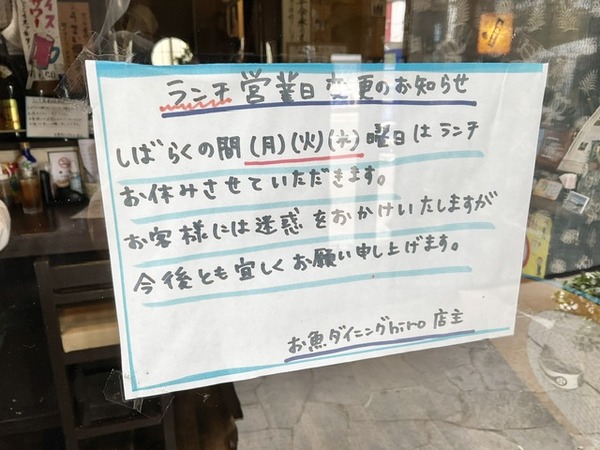 ランチ営業日変更のお知らせ
しばらくの間(月)(火)(水)曜日はランチ
お休みさせていただきます。
お客様には迷惑をおかけいたしますが
今後とも宜しくお願い申し上げます。
お魚ダイニングhiro 店主